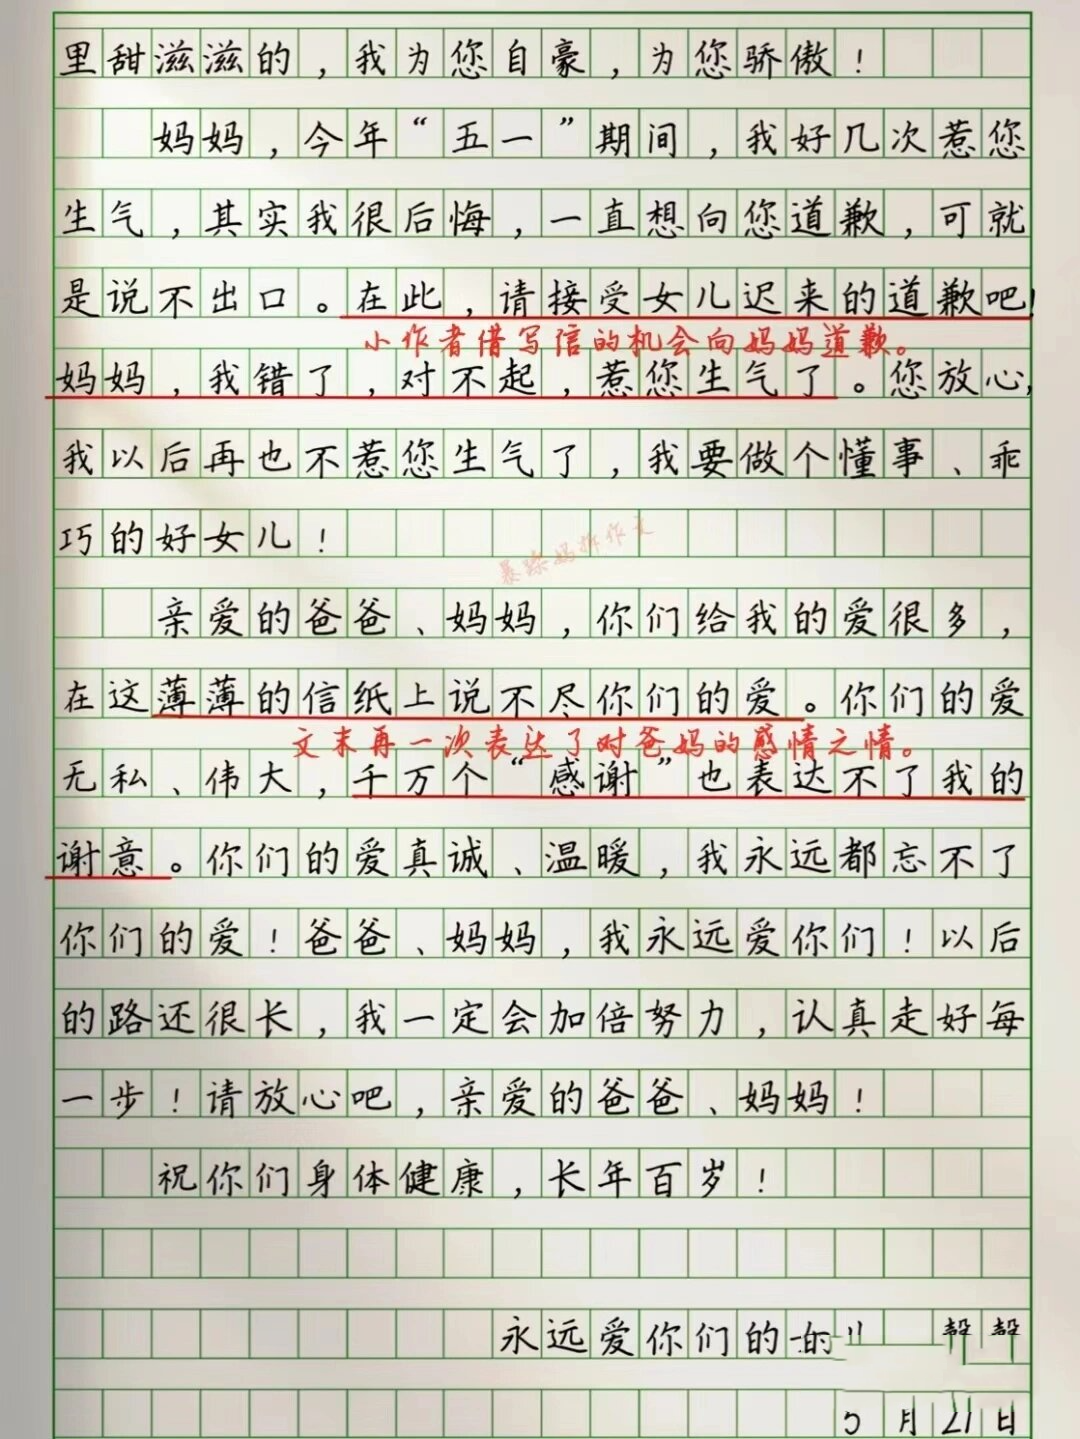 里甜滋滋的，我为您自豪，为您骄傲！
妈妈，今年“五一”期间，我好几次惹您
生气，其实我很后悔，一直想向您道歉，可就
是说不出口。在此，请接受女儿迟来的道歉吧！
小作者借写信的机会向妈妈道歉。
妈妈，我错了，对不起，惹您生气了。您放心，
我以后再也不惹您生气了，我要做个懂事、乖
巧的好女儿！
暴躁妈拆作文
亲爱的爸爸、妈妈，你们给我的爱很多，
在这薄薄的信纸上说不尽你们的爱。你们的爱
文末再一次表达了对爸妈的感情之情。
无私、伟大，千万个“感谢”也表达不了我的
谢意。你们的爱真诚、温暖，我永远都忘不了
你们的爱！爸爸、妈妈，我永远爱你们！以后
的路还很长，我一定会加倍努力，认真走好每
一步！请放心吧，亲爱的爸爸、妈妈！
祝你们身体健康，长年百岁！
永远爱你们的
月21日